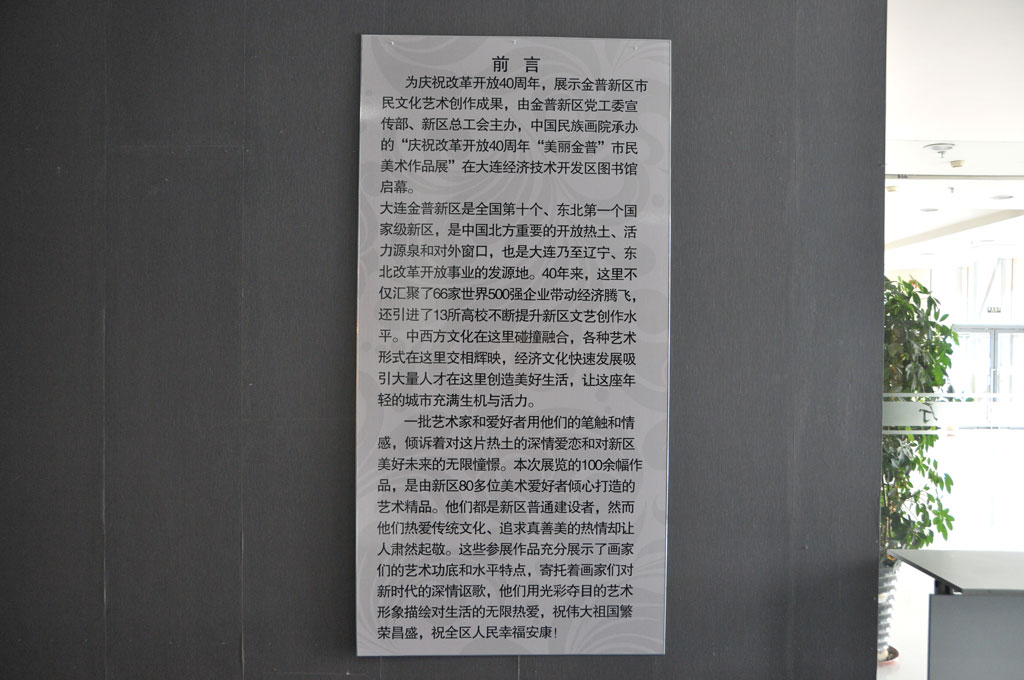 前 言
为庆祝改革开放40周年，展示金普新区市
民文化艺术创作成果，由金普新区党工委宣
传部、新区总工会主办，中国民族画院承办
的“庆祝改革开放40周年“美丽金普”市民
美术作品展”在大连经济技术开发区图书馆
启幕。
大连金普新区是全国第十个、东北第一个国
家级新区，是中国北方重要的开放热土、活
力源泉和对外窗口，也是大连乃至辽宁、东
北改革开放事业的发源地。40年来，这里不
仅汇聚了66家世界500强企业带动经济腾飞，
还引进了13所高校不断提升新区文艺创作水
平。中西方文化在这里碰撞融合，各种艺术
形式在这里交相辉映，经济文化快速发展吸
引大量人才在这里创造美好生活，让这座年
轻的城市充满生机与活力。
一批艺术家和爱好者用他们的笔触和情
感，倾诉着对这片热土的深情爱恋和对新区
美好未来的无限憧憬。本次展览的100余幅作
品，是由新区80多位美术爱好者倾心打造的
艺术精品。他们都是新区普通建设者，然而
他们热爱传统文化、追求真善美的热情却让
人肃然起敬。这些参展作品充分展示了画家
们的艺术功底和水平特点，寄托着画家们对
新时代的深情讴歌，他们用光彩夺目的艺术
形象描绘对生活的无限热爱，祝伟大祖国繁
荣昌盛，祝全区人民幸福安康！